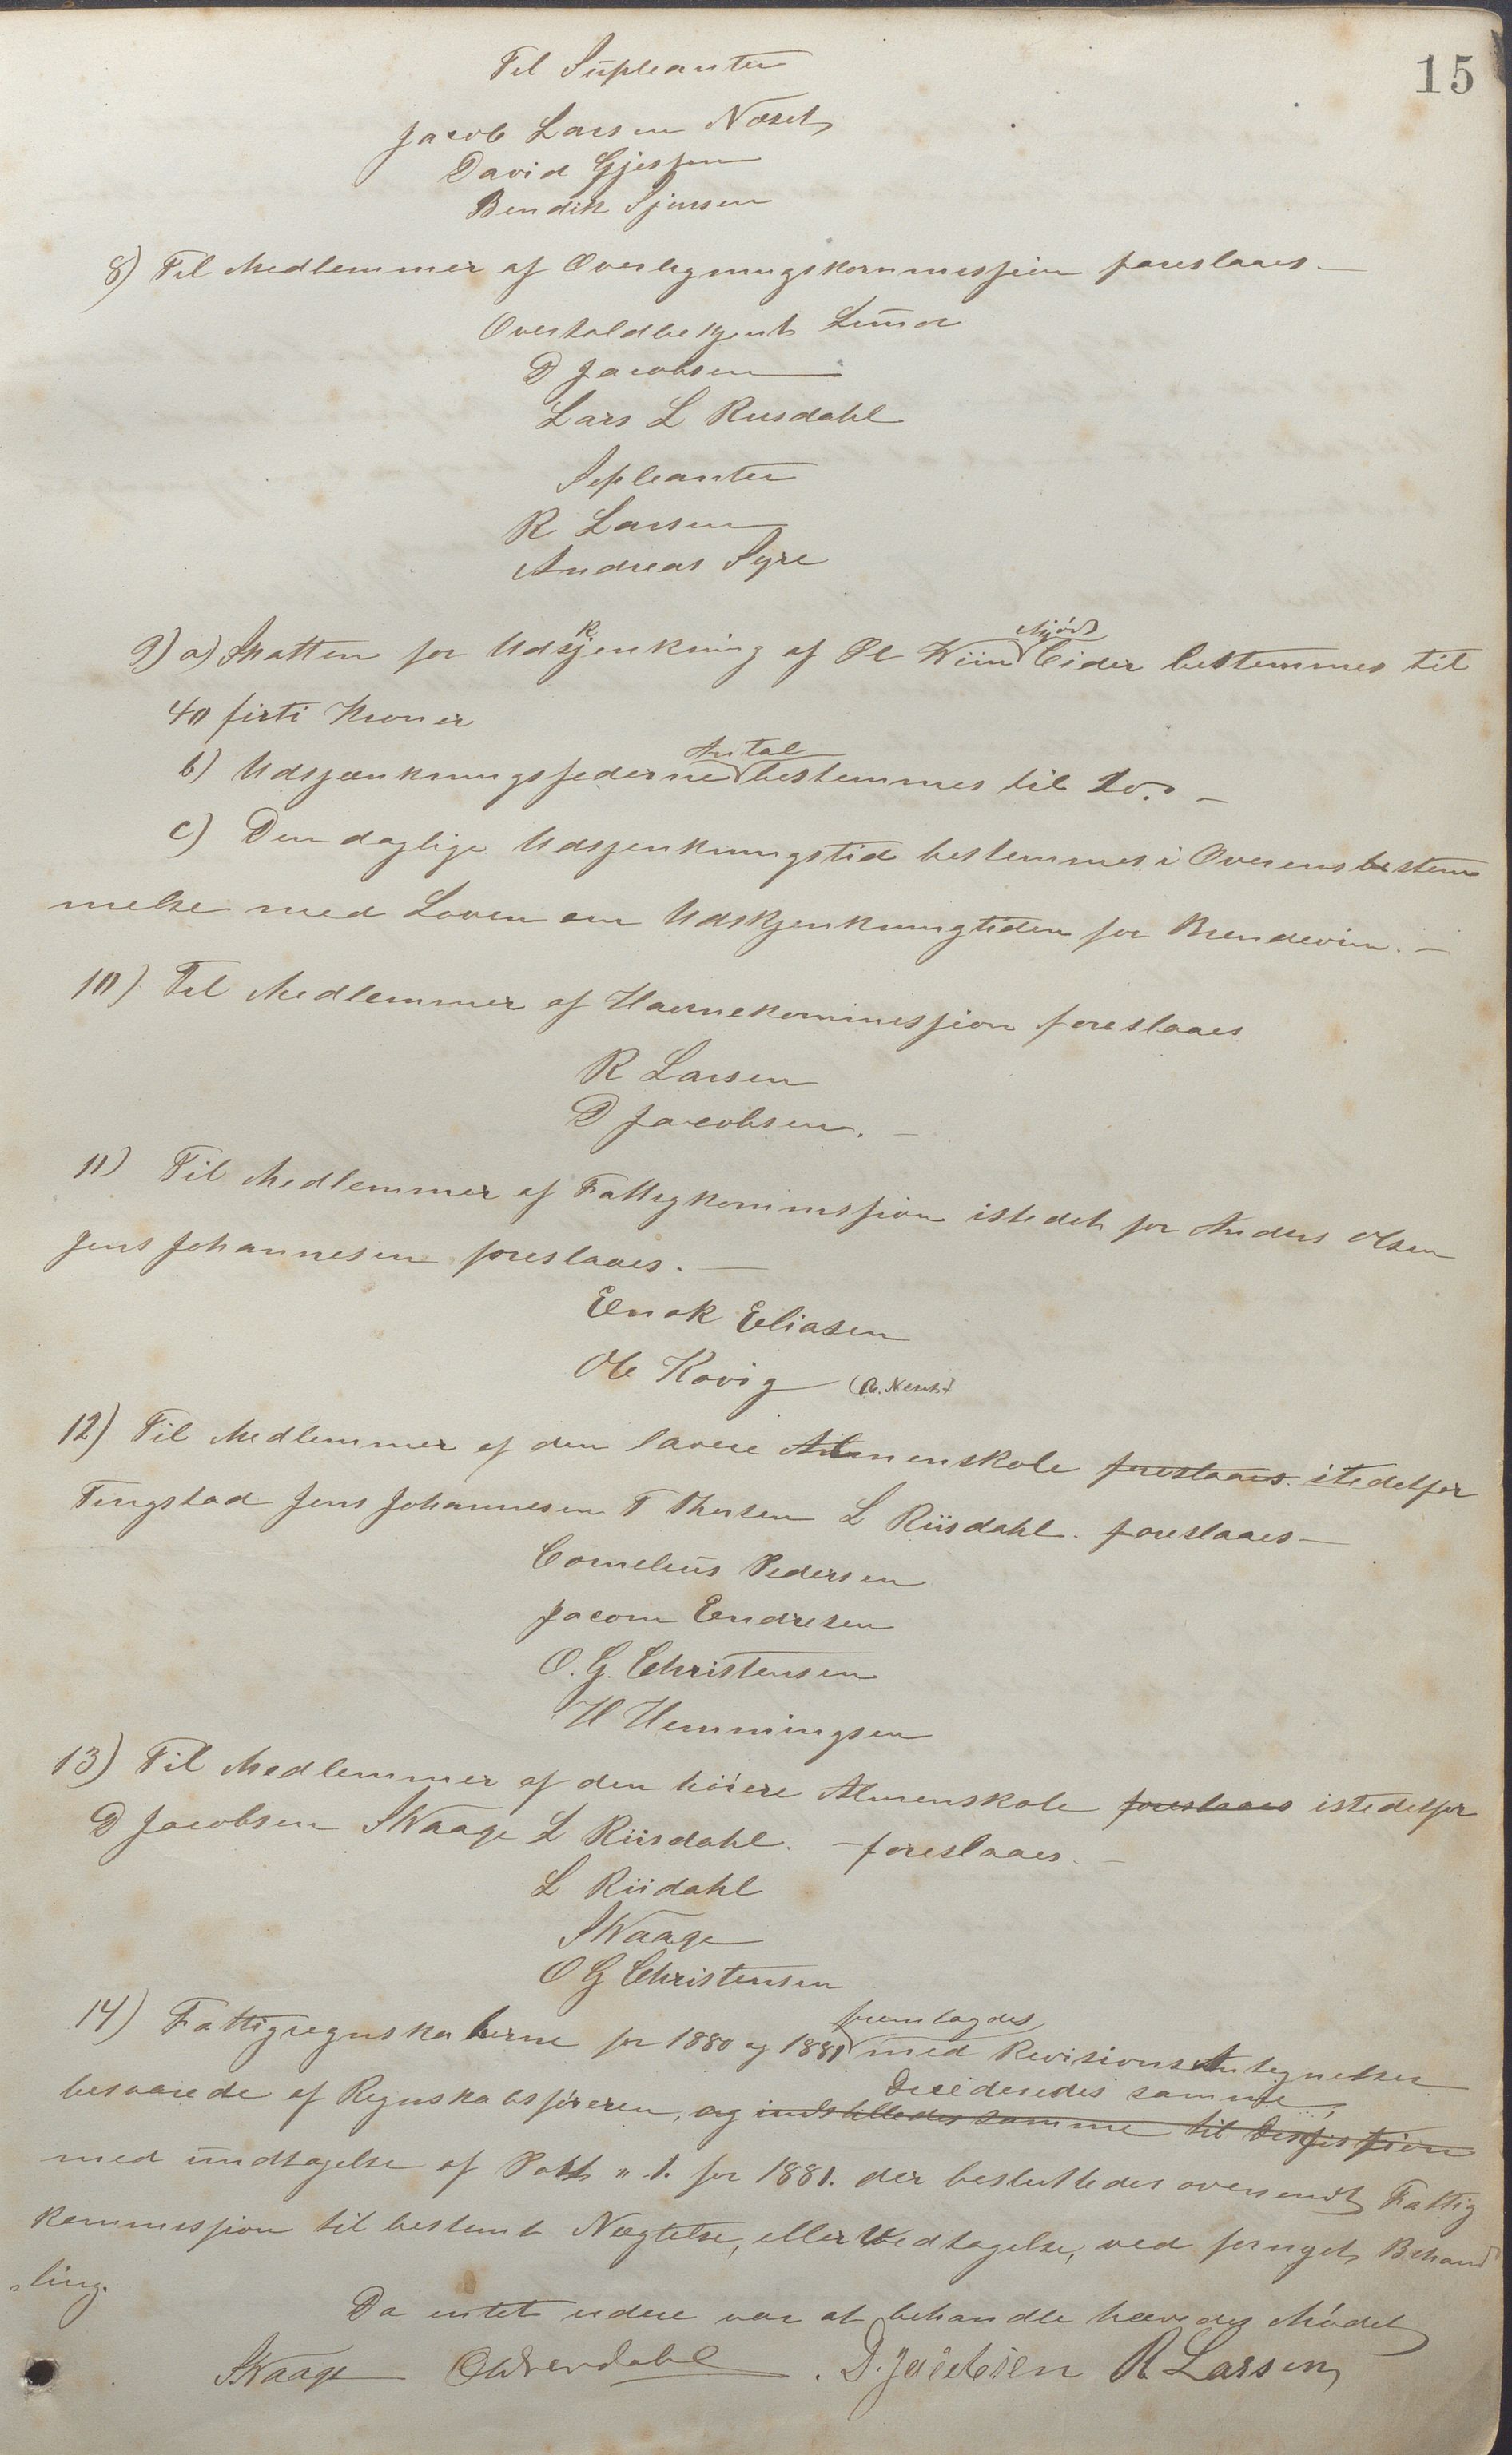 15
Til Supleanter
Jacob Larsen Næset
David Gjessen
Bendik Sjursen
8) Til Medlemmer af Overligningskommissjion foreslaaes.—
Overtoldbetjent Lunde
D Jacobsen
Lars L Risdahl
Supleanter
R Larsen
Andreas Syre
9) a) Skatten for Udskjenkning af Øl Wiin Mjød Cider bestemmes til
40 firti Kroner
b) Udsjænkningsstederne Antal bestemmes til 20. —
c) Den daglige Udsjenkningstid bestemmes i Overensstem
melse med Loven om Udskjenkningtiden for Brendeviin. —
10) Til Medlemmer af Havnekommissjion foreslaaes
R Larsen
D Jacobsen. —
11) Til Medlemmer af Fattigkommissjion istedet for Anders Olsen
Jens Johannesen foreslaaes. —
Enok Eliasen
Ole Kovig
12) Til Medlemmer af den lavere Almenskole foreslaaes istedetfor
Tengstad Jens Johannesen T Thorsen L Riisdahl. foreslaaes —
Cornelius Pedersen
Jacom Endresen
O. G. Christensen
H Hemmingsen
13) Til Medlemmer af den höiere Almenskole foreslaaes istedetfor
D Jacobsen S Waage L Riisdahl. — foreslaaes. —
L Riidahl
S Waage
O G Christensen
14) Fattigregnskaberne for 1880 og 1881 fremlagdes med Revisions Antegnelser
besvarede af Regnskabsföreren, og indstilledes samme til Desissjion Decideredes samme,
med undtagelse af Post n. 1. for 1881. der besluttedes oversendt Fattig
kommissjion til bestemt Nægtelse, eller Vedtagelse, ved fornyet Behand
ling.
Da intet videre var at behandle hævedes Mödet
S Waage D. Jacobsen R Larsen